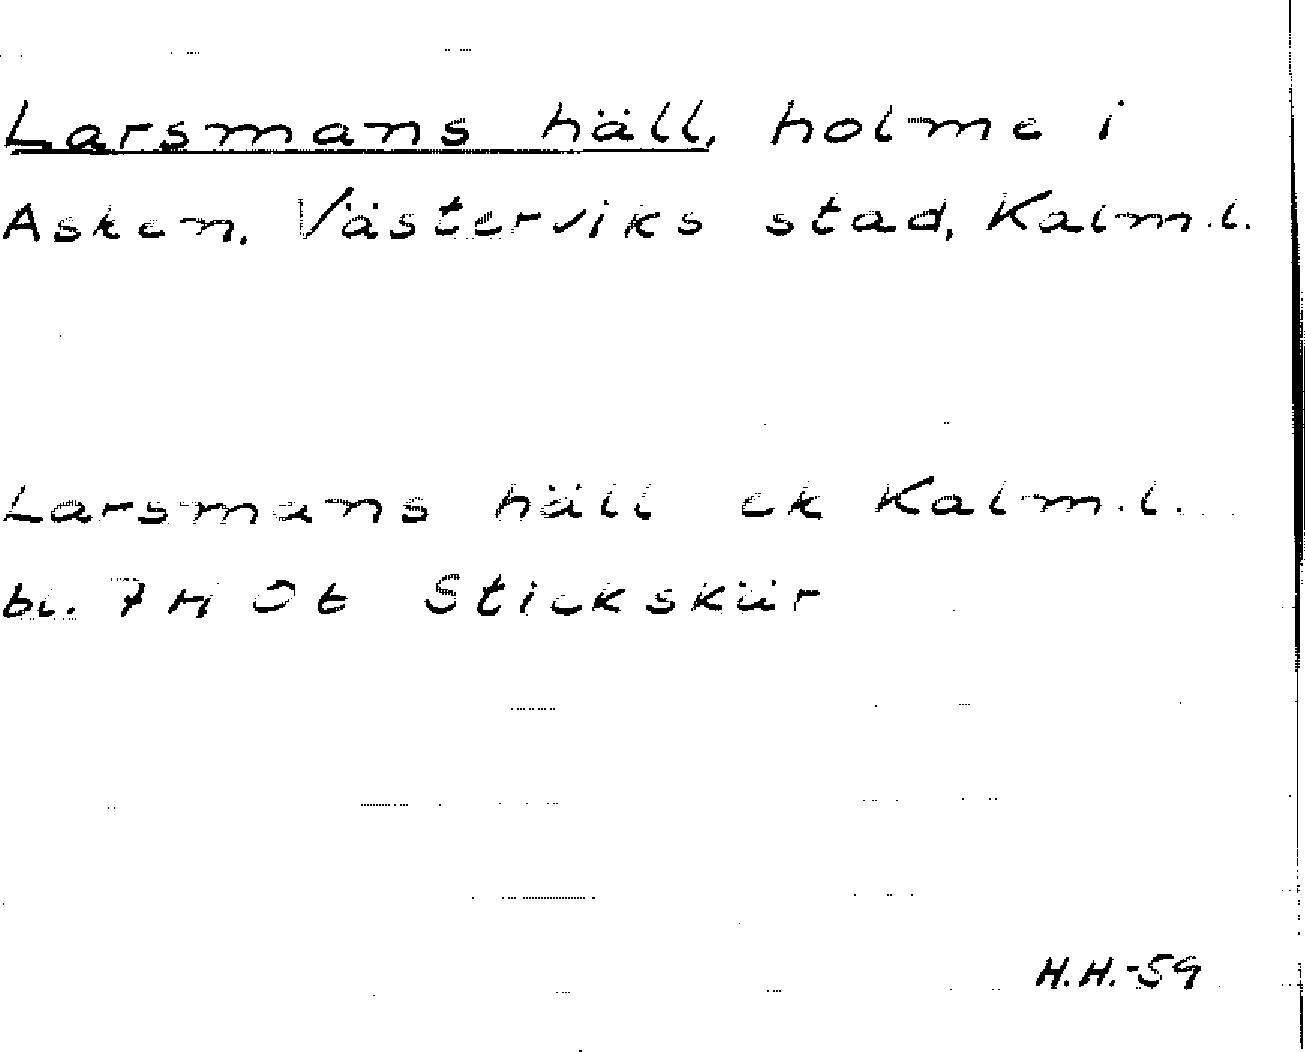 Larsmans häll, holme i
Asken, Västerviks stad, Kalm.l.
Larsmans häll ek Kalm.l.
bl. 7 H Stickskär
H.H.-59